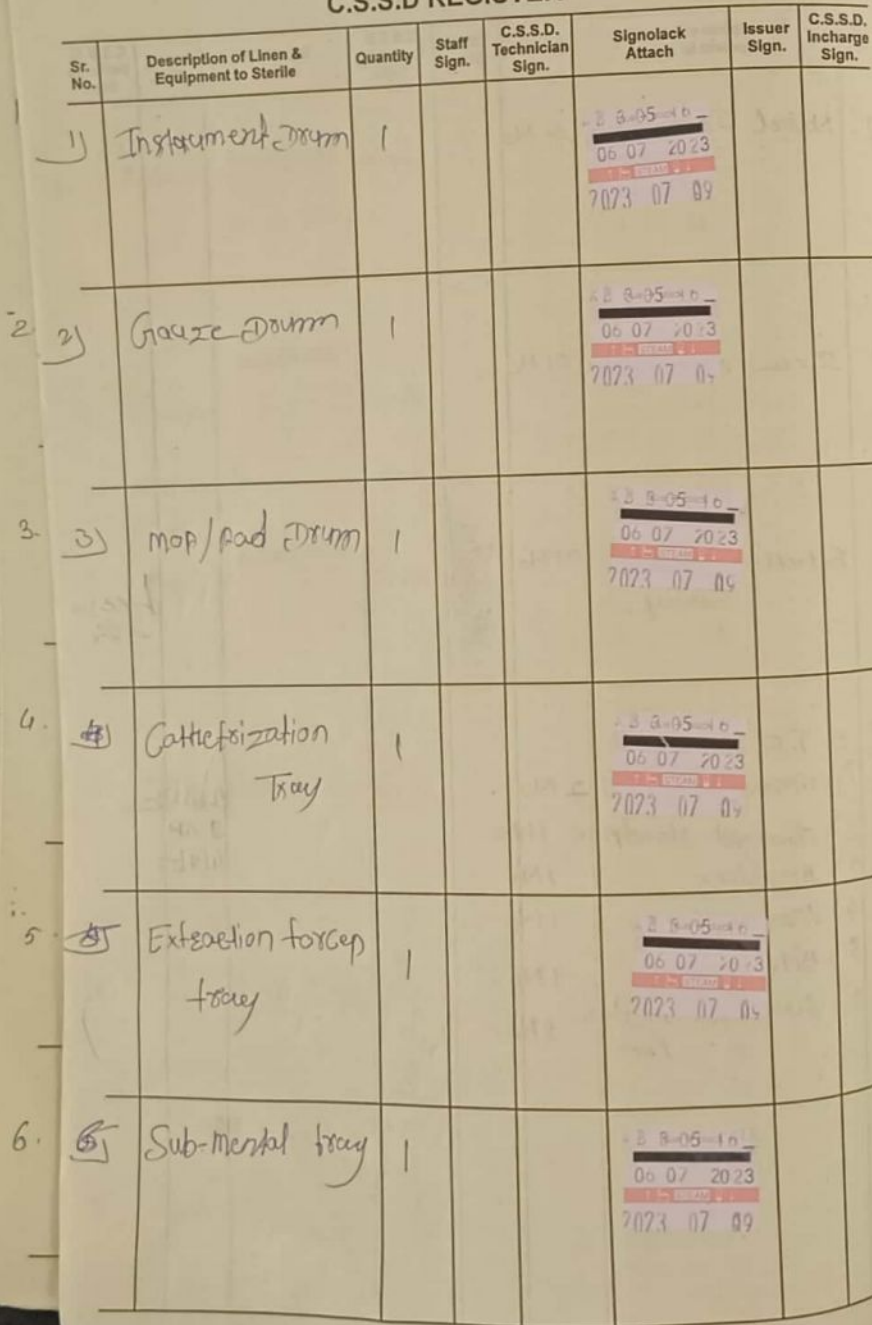 C.S.S.D REGISTER
Sr. No.
Description of Linen & Equipment to Sterile
Quantity
Staff Sign.
C.S.S.D. Technician Sign.
Signolack Attach
Issuer Sign.
C.S.S.D. Incharge Sign.
1) Instrument Drum 1
06 07 2023
STEAM
2023 07 09
2 2) Gauze Drum 1
06 07 2023
STEAM
2023 07
3. 3) Mop/Pad Drum 1
06 07 2023
STEAM
2023 07 09
4. Cathetrization 1
Tray
06 07 2023
STEAM
2023 07 09
5. Extraction forcep 1
tray
06 07 2023
STEAM
2023 07 09
6. 6) Sub-mental tray 1
06 07 2023
STEAM
2023 07 09